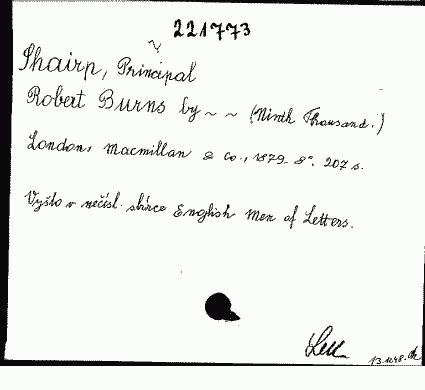 221773
Shairp, Principal
Robert Burns by ~ ~ (Ninth Thousand.)
London, Macmillan & Co., 1879. 8°. 207 s.
Vyšlo v nečísl. sbírce English Men of Letters.